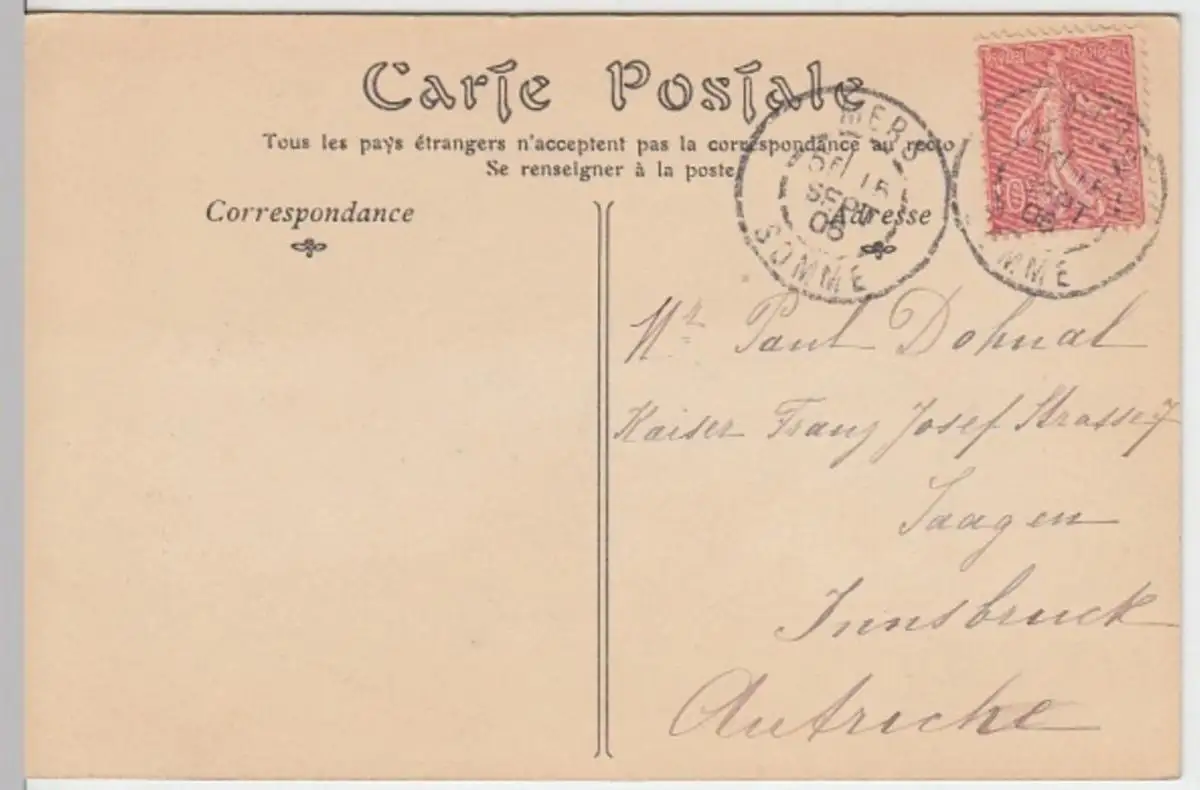 Carte Postale
Tous les pays étrangers n'acceptent pas la correspondance au recto
Se renseigner à la poste
Correspondance
Adresse
MERS
15
SEPT
06
SOMME
10
SEPT
06
MME
Mr Paul Dohnal
Kaiser Franz Josef Strasse 7
Saagen
Innsbruck
Autriche